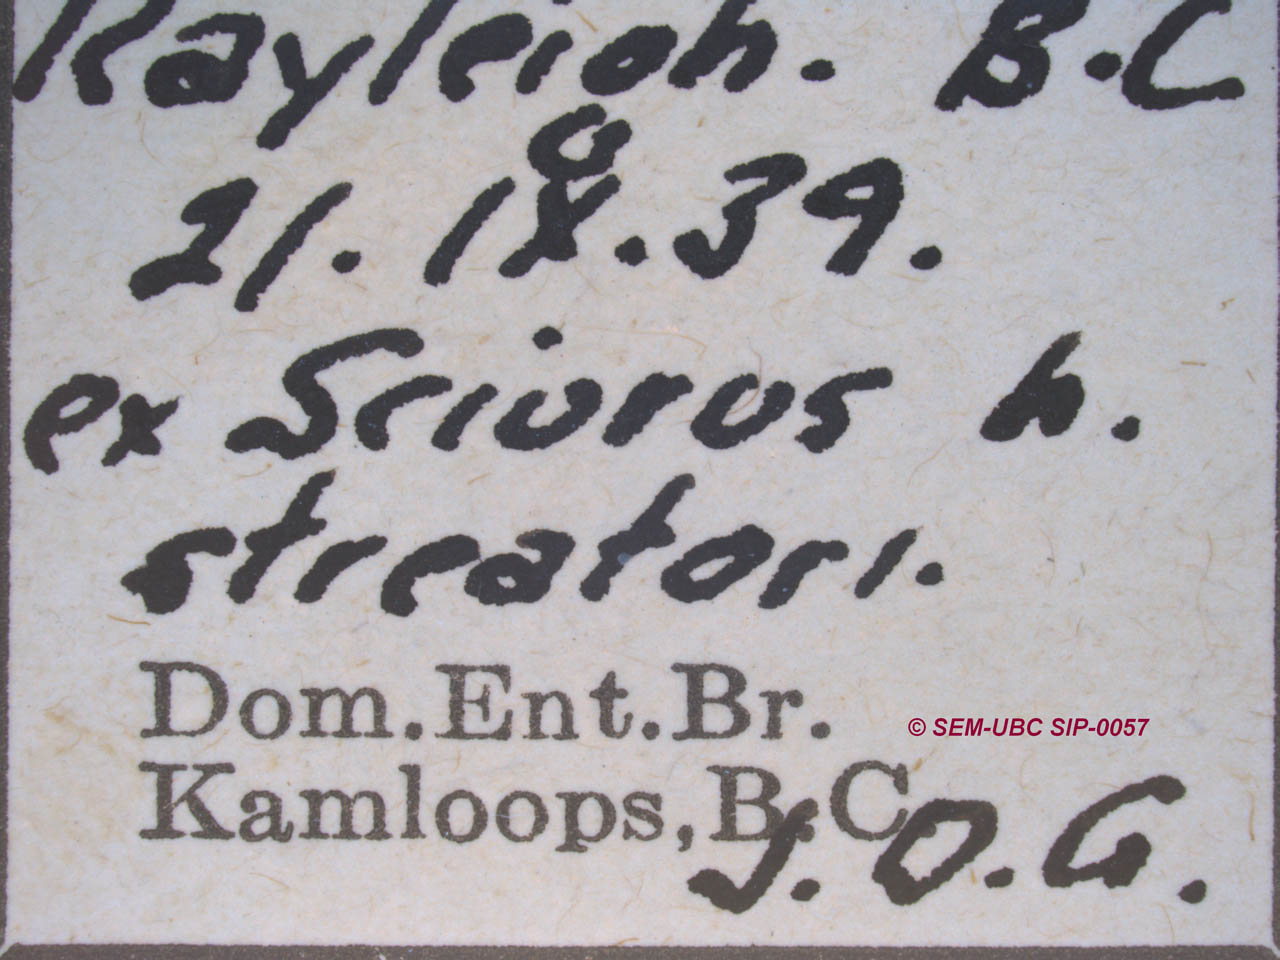 Rayleigh. B.C
21.IX.39.
ex Sciurus h.
streatori.
Dom.Ent.Br.
© SEM-UBC SIP-0057
Kamloops,B.C.
J.O.G.